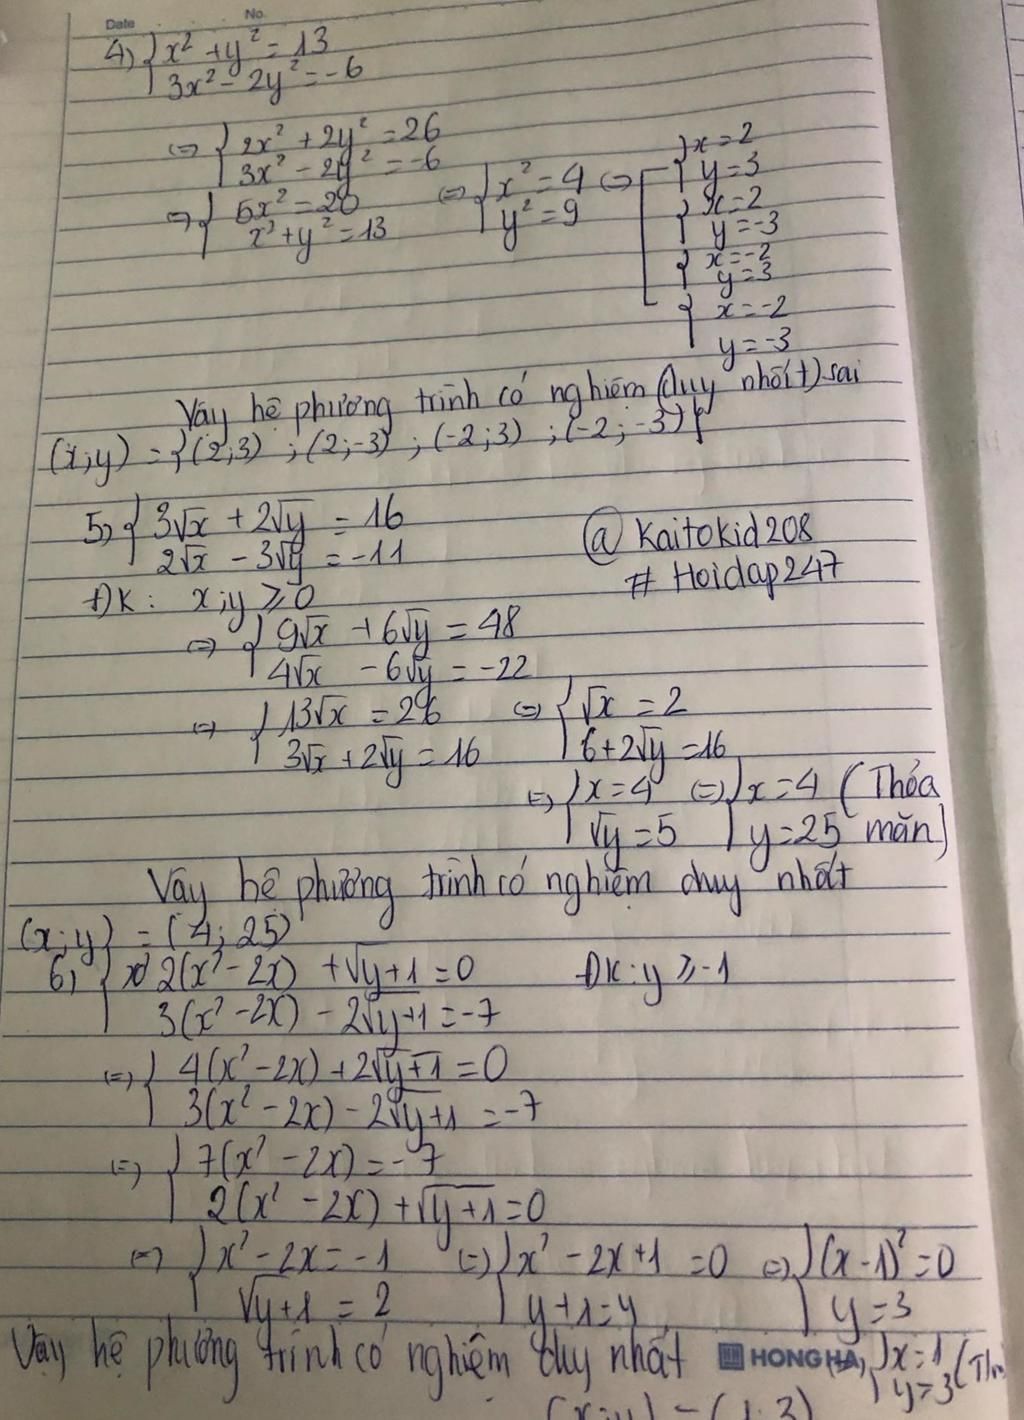 Date No.
4) { x² + y² = 13
3x² - 2y² = -6
(=) { 2x² + 2y² = 26
3x² - 2y² = -6
(=) { 5x² = 20
x² + y² = 13
(=) { x² = 4
y² = 9
(=) [ { x = 2
y = 3
{ x = 2
y = -3
{ x = -2
y = 3
{ x = -2
y = -3
Vậy hệ phương trình có nghiệm (duy nhất) sai
(x;y) = {(2;3) ; (2;-3) ; (-2;3) ; (-2;-3)}
5) { 3√x + 2√y = 16
2√x - 3√y = -11
@Kaitokid208
# Hoidap247
ĐK: x;y ≥ 0
(=) { 9√x + 6√y = 48
4√x - 6√y = -22
(=) { 13√x = 26
3√x + 2√y = 16
(=) { √x = 2
6 + 2√y = 16
(=) { x = 4
√y = 5
(=) { x = 4 (Thỏa
y = 25 mãn)
Vậy hệ phương trình có nghiệm duy nhất
(x;y) = (4; 25)
6) { 2(x² - 2x) + √y+1 = 0 ĐK: y ≥ -1
3(x² - 2x) - 2√y+1 = -7
(=) { 4(x² - 2x) + 2√y+1 = 0
3(x² - 2x) - 2√y+1 = -7
(=) { 7(x² - 2x) = -7
2(x² - 2x) + √y+1 = 0
(=) { x² - 2x = -1
√y+1 = 2
(=) { x² - 2x + 1 = 0
y + 1 = 4
(=) { (x - 1)² = 0
y = 3
Vậy hệ phương trình có nghiệm duy nhất
HONG HA
{ x = 1
y = 3
(x;y) = (1;3)